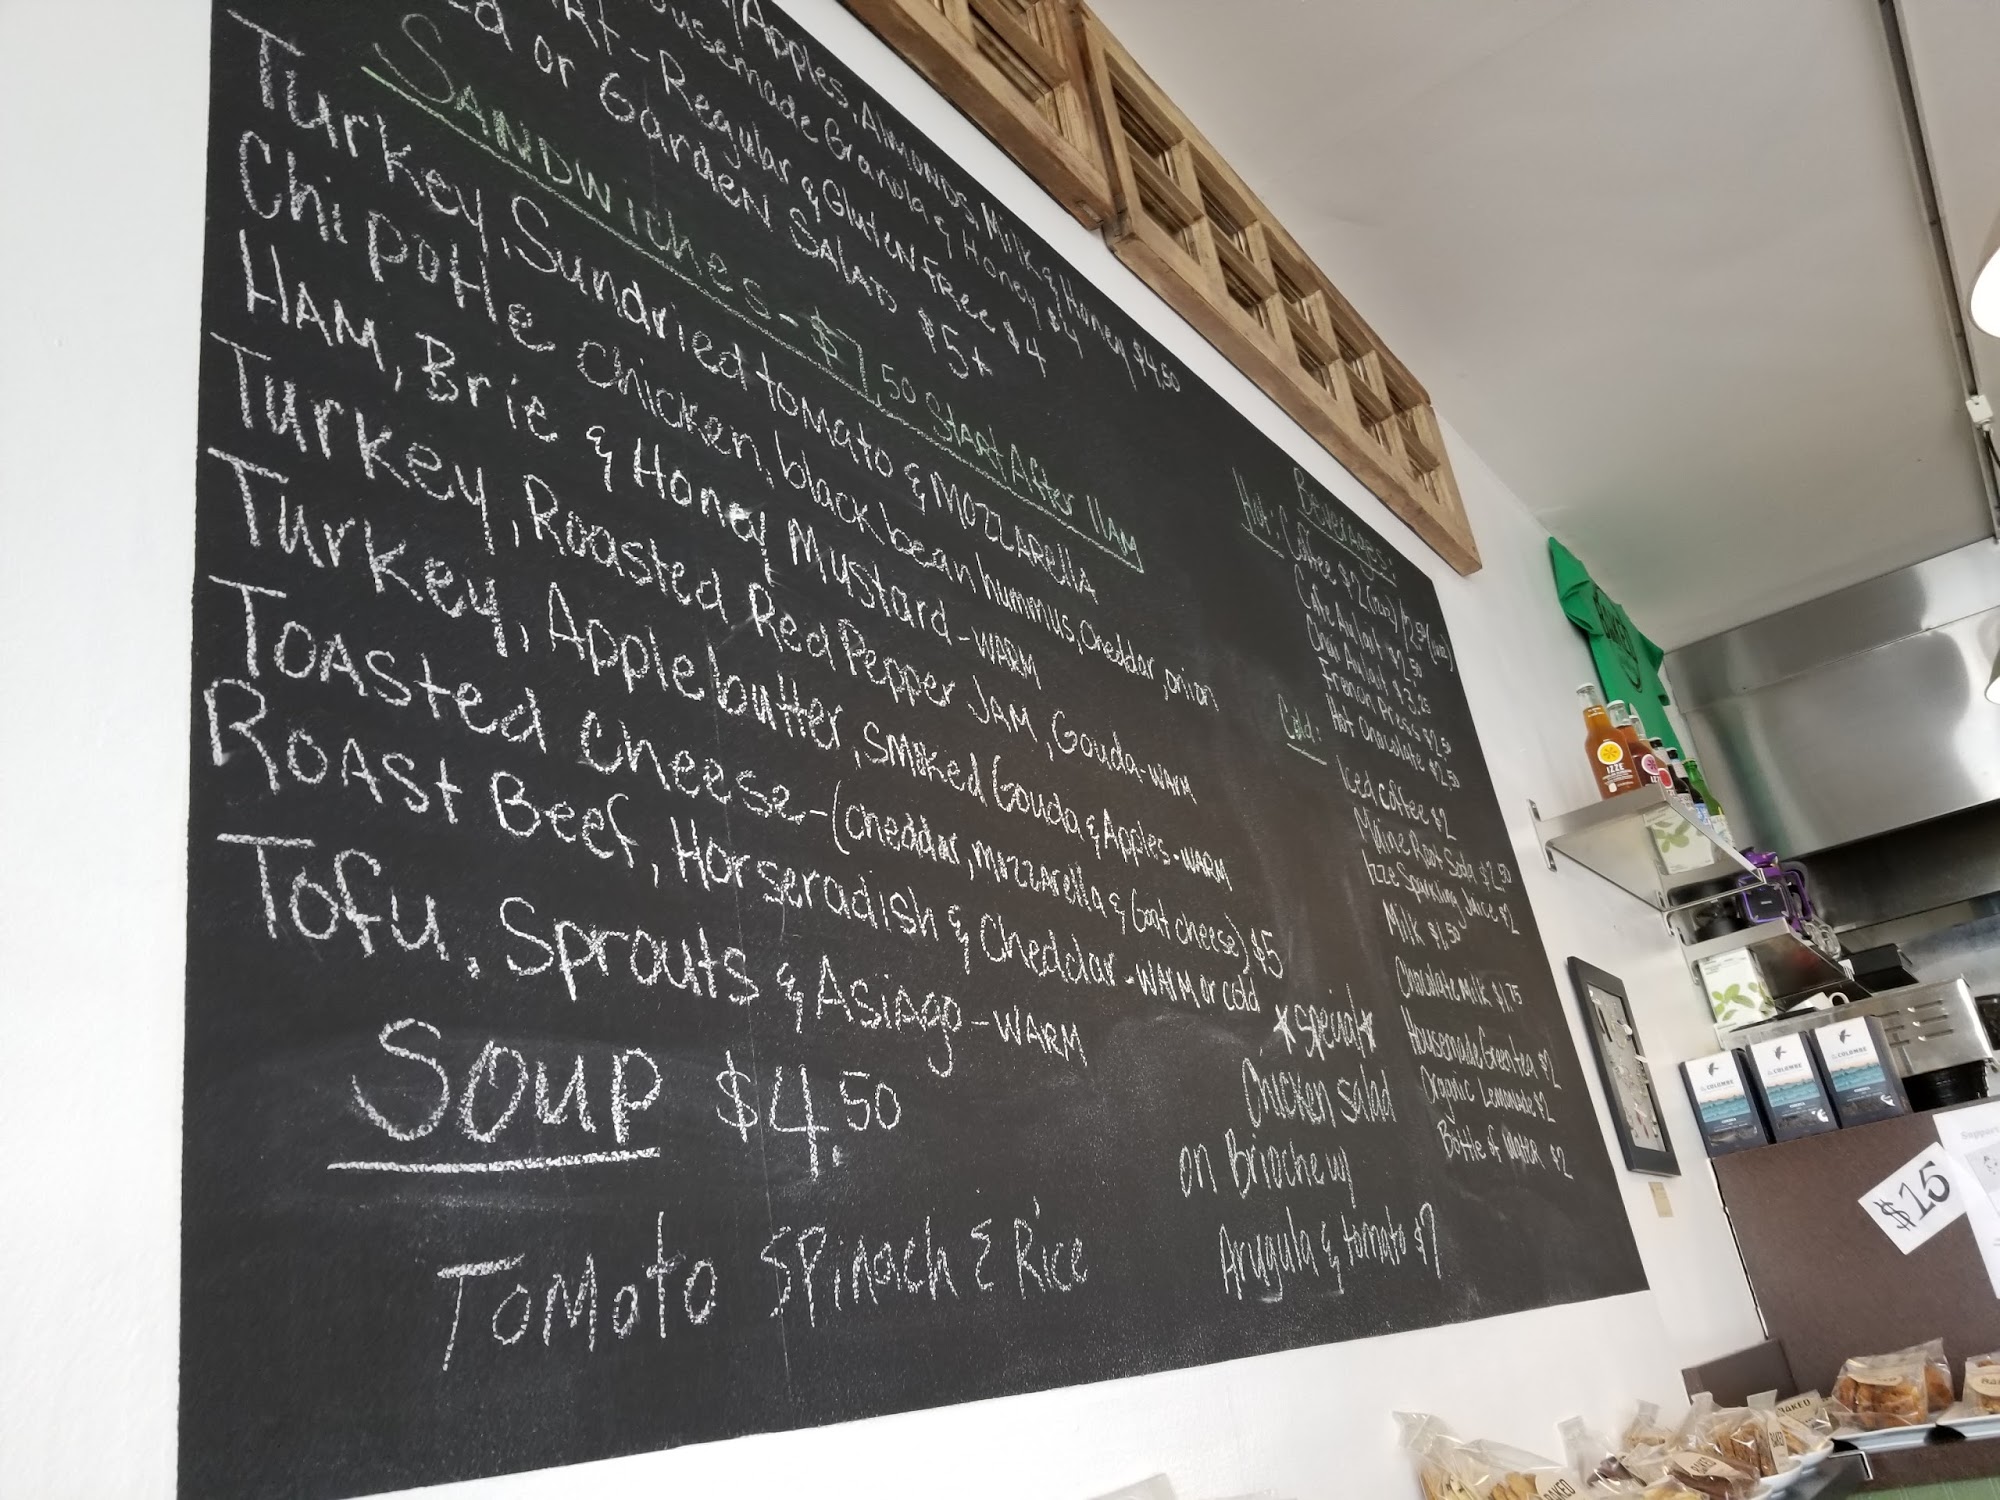 Apples, Almonds, Milk & Honey $4.50
Housemade Granola & Honey $4
- Regular & Gluten Free $4
or Garden Salad $5*
Sandwiches - $7.50 Start After 11AM
Turkey, Sundried tomato & Mozzarella
Chipotle chicken, black bean hummus, Cheddar, onion
Ham, Brie & Honey Mustard - WARM
Turkey, Roasted Red Pepper JAM, Gouda - WARM
Turkey, Apple butter, Smoked Gouda & Apples - WARM
Toasted cheese - (cheddar, mozzarella & Goat cheese) $5
Roast Beef, Horseradish & Cheddar - WARM or cold
Tofu, Sprouts & Asiago - WARM
Soup $4.50
Tomato Spinach & Rice
*Special*
Chicken salad
on Brioche w/
Arugula & tomato $7
Beverages:
Hot: Coffee $2
Cafe Au lait $2.50
Chai Au lait $3.25
French Press
Hot Chocolate $2.50
Cold:
Iced coffee $2
Maine Root Soda $2.50
Izze Sparkling Juice $2
Milk $1.50
Chocolate Milk $1.75
Housemade Green tea $2
Organic Lemonade $2
Bottle of Water $2
IZZE
La COLOMBE
La COLOMBE
La COLOMBE
$25
Support
BAKED
BAKED
BAKED
BAKED